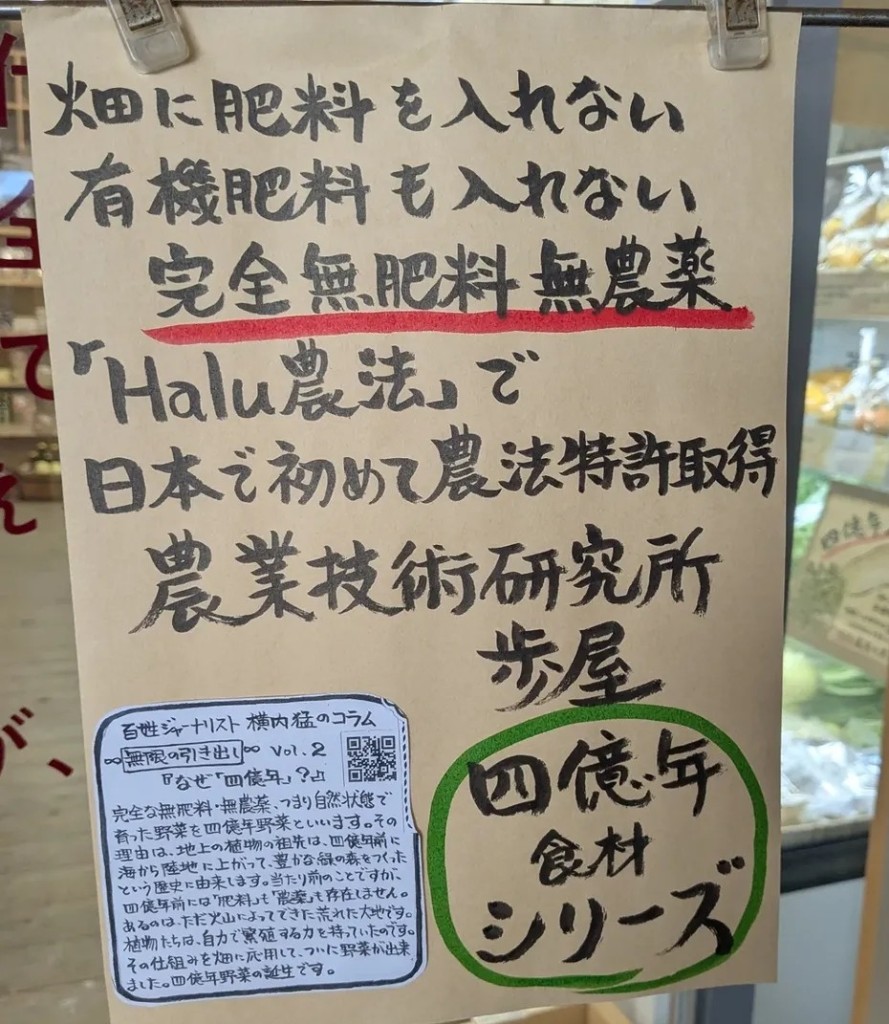 畑に肥料を入れない
有機肥料も入れない
完全無肥料 無農薬
「Halu農法」で
日本で初めて農法特許取得
農業技術研究所
歩屋
四億年
食材
シリーズ
百姓ジャーナリスト 横内猛のコラム
∞無限の引き出し∞ Vol.2
『なぜ「四億年」?』
完全な無肥料・無農薬、つまり自然状態で
育った野菜を四億年野菜といいます。その
理由は、地上の植物の祖先は、四億年前に
海から陸地に上がって、豊かな緑の森をつくった
という歴史に由来します。当たり前のことですが、
四億年前には「肥料」も「農薬」も存在しません。
あるのは、ただ火山によってできた荒れた大地です。
植物たちは、自力で繁殖する力を持っていたのです。
その仕組みを畑に応用して、ついに野菜が出来
ました。四億年野菜の誕生です。
四億年